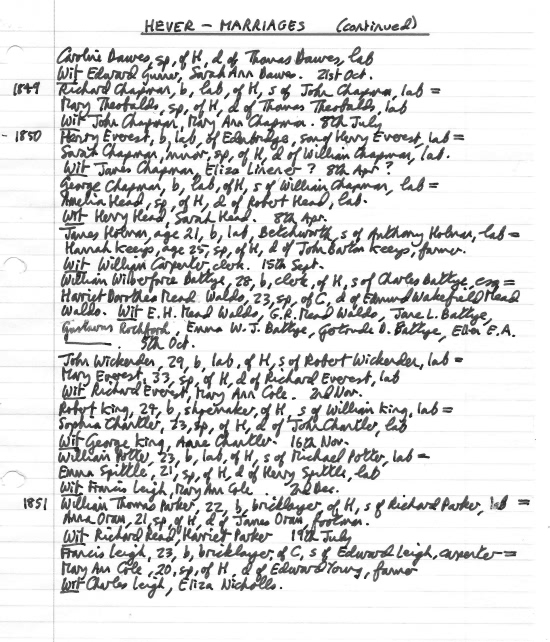 HEVER – MARRIAGES (continued)
Caroline Dawes, sp, of H, d of Thomas Dawes, lab
Wit Edward Gunner, Sarah Ann Dawes. 21st Oct.
1849 Richard Chapman, b, lab, of H, s of John Chapman, lab =
Mary Theobalds, sp, of H, d of Thomas Theobalds, lab
Wit John Chapman, Mary Ann Chapman. 8th July
- 1850 Henry Everest, b, lab, of Edenbridge, son of Henry Everest, lab =
Sarah Chapman, minor, sp, of H, d of William Chapman, lab.
Wit James Chapman, Eliza ? 8th Apr ?
George Chapman, b, lab, of H, s of William Chapman, lab =
Amelia Head, sp, of H, d of Robert Head, lab.
Wit Henry Head, Sarah Head. 8th Apr.
James Holman, age 21, b, lab, Betchworth, s of Anthony Holman, lab =
Hannah Keeys, age 25, sp, of H, d of John Barton Keeys, farmer.
Wit William Carpenter, clerk. 15th Sept.
William Wilberforce Battye, 28, b, clerk, of H, s of Charles Battye, esq =
Harriet Dorothea Mead Waldo, 23, sp, of C, d of Edmund Wakefield Mead
Waldo. Wit E.H. Mead Waldo, G.R. Mead Waldo, Jane L. Battye,
Gustavus Rochfort, Emma W. J. Battye, Gertrude D. Battye, Ellen E.A.
5th Oct.
John Wickenden, 29, b, lab, of H, s of Robert Wickenden, lab =
Mary Everest, 33, sp, of H, d of Richard Everest, lab
Wit Richard Everest, Mary Ann Cole. 2nd Nov.
Robert King, 29, b, shoemaker, of H, s of William King, lab =
Sophia Chantler, 23, sp, of H, d of John Chantler, lab
Wit George King, Anne Chantler. 16th Nov.
William Potter, 23, b, lab, of H, s of Michael Potter, lab =
Emma Spittle, 21, sp, of H, d of Henry Spittle, lab
Wit Francis Leigh, Mary Ann Cole 2nd Dec.
1851 William Thomas Parker, 22, b, bricklayer, of H, s of Richard Parker, lab =
Anna Oran, 21, sp, of H, d of James Oran, footman.
Wit Richard Read, Harriet Parker 19th July
Francis Leigh, 23, b, bricklayer, of C, s of Edward Leigh, carpenter =
Mary Ann Cole, 20, sp, of H, d of Edward Young, farmer
Wit Charles Leigh, Eliza Nicholls.